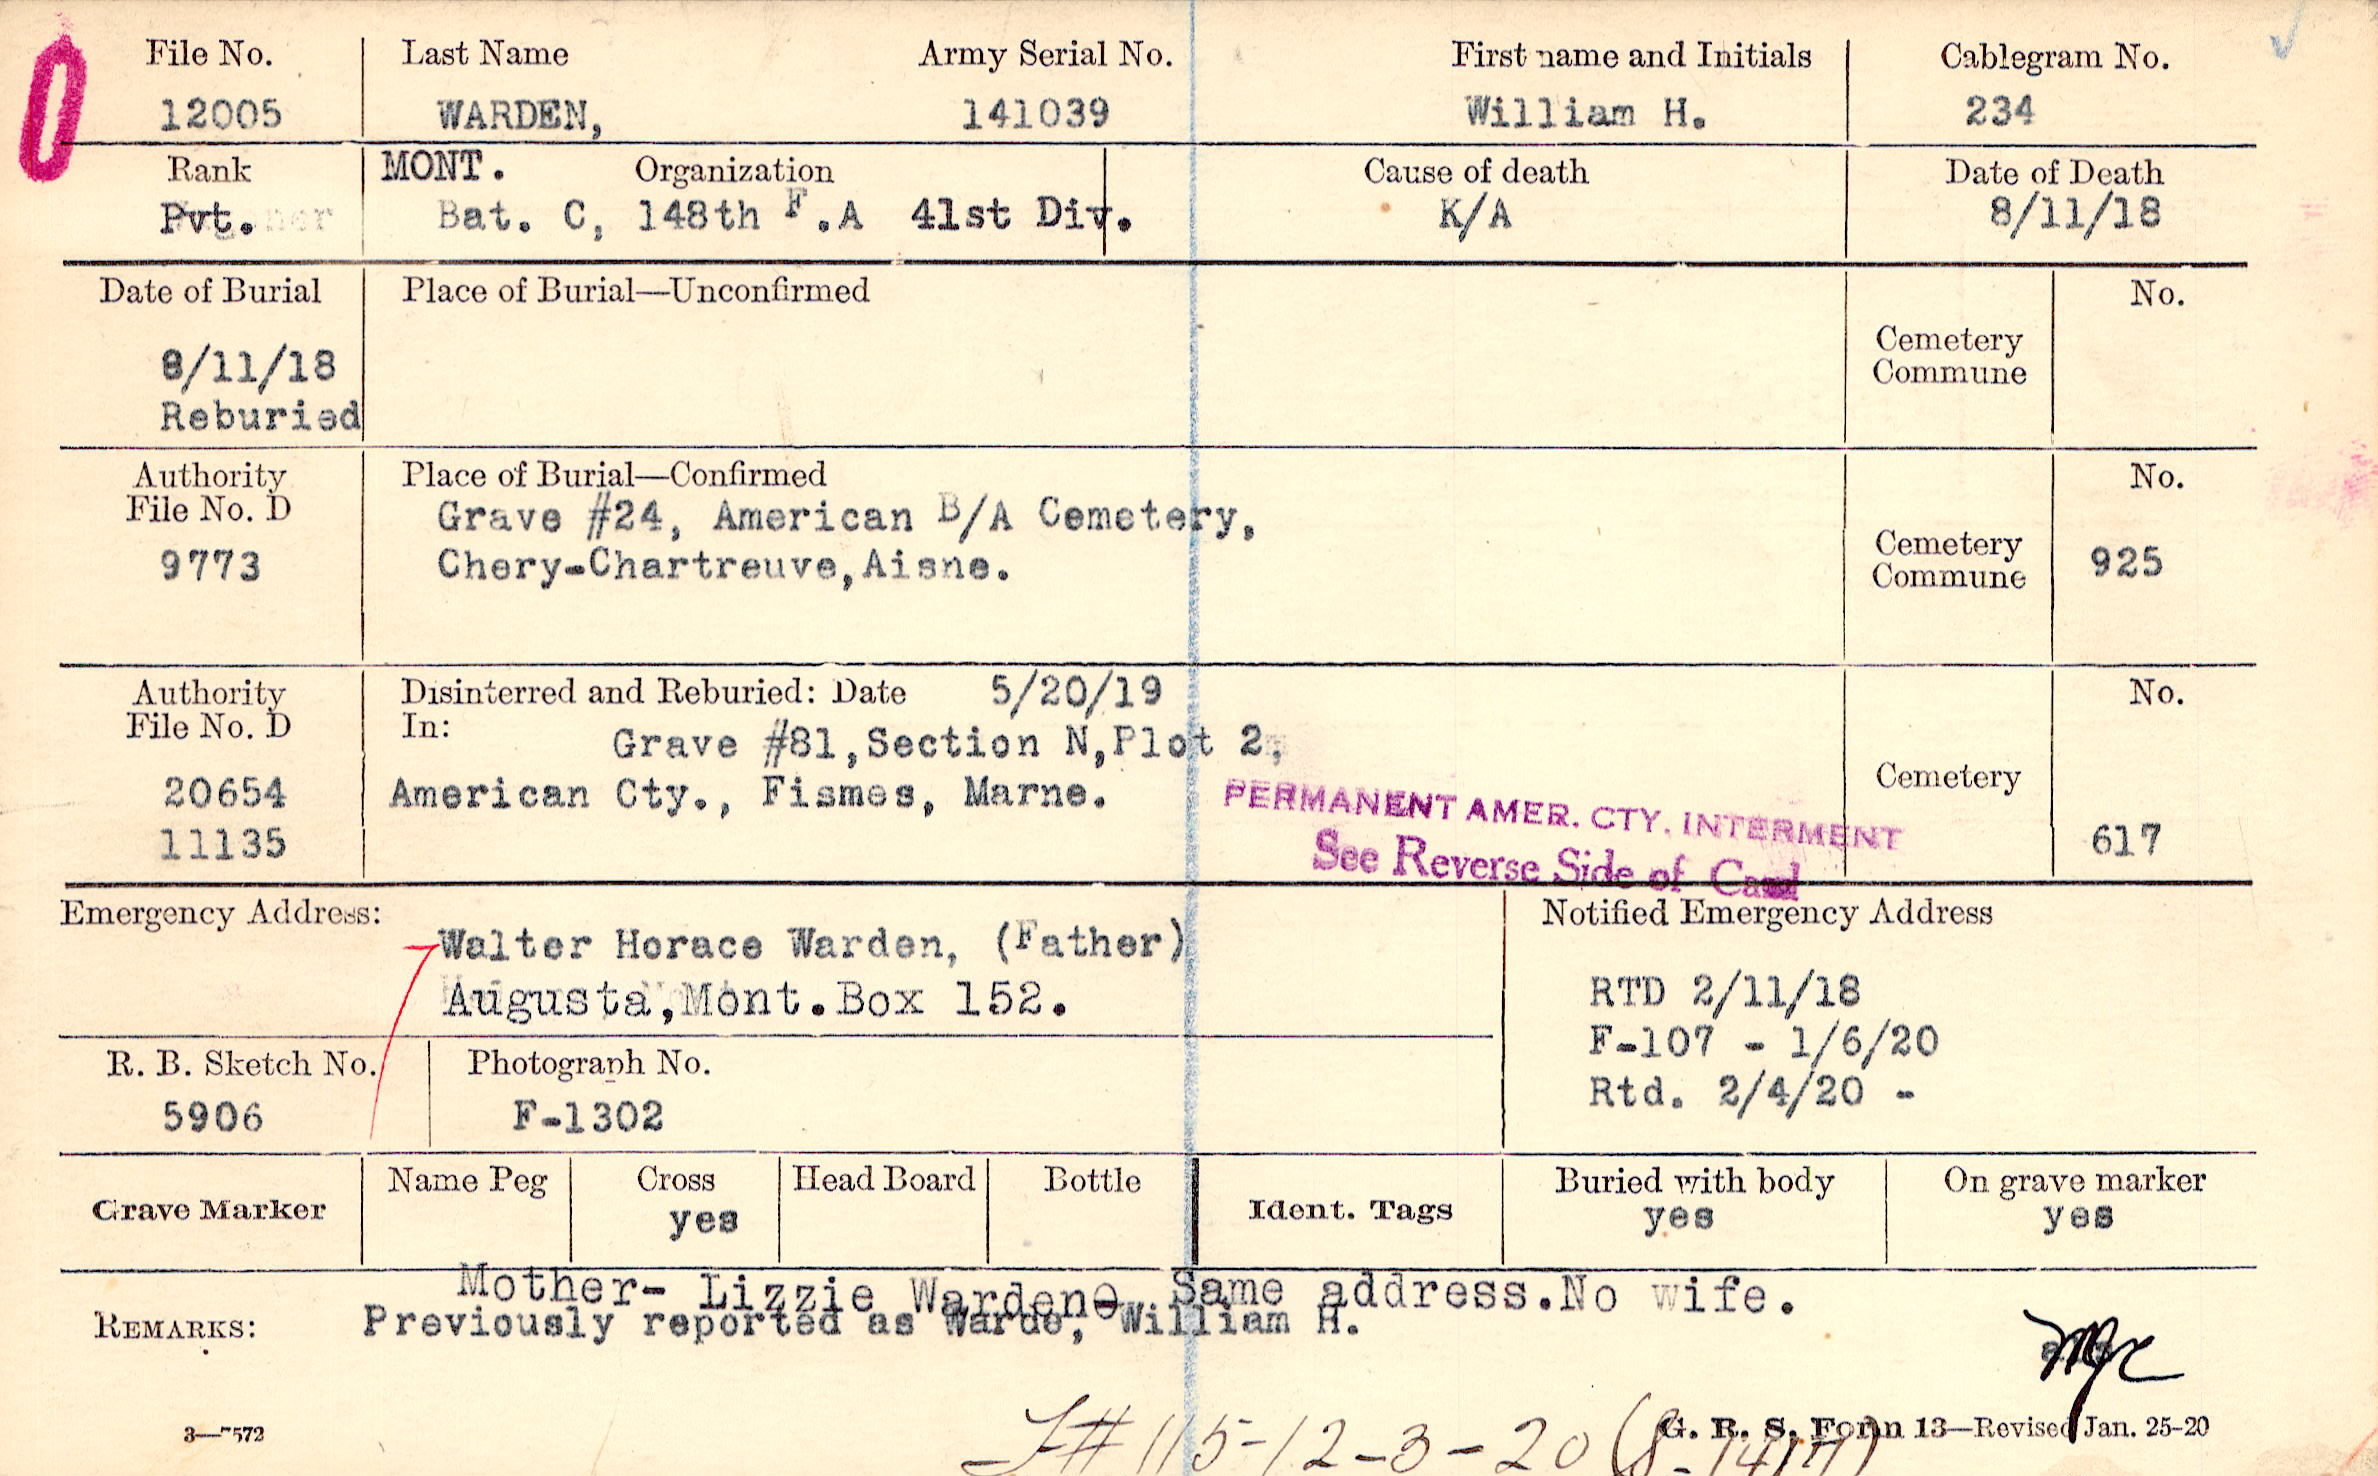 File No. Last Name Army Serial No. First name and Initials Cablegram No.
12005 WARDEN, 141039 William H. 234
Rank MONT. Organization Cause of death Date of Death
Pvt. Bat. C, 148th F.A 41st Div. K/A 8/11/18
Date of Burial Place of Burial—Unconfirmed No.
Cemetery
Commune
8/11/18
Reburied
Authority Place of Burial—Confirmed No.
File No. D Grave #24, American B/A Cemetery,
9773 Chery-Chartreuve, Aisne. Cemetery
Commune 925
Authority Disinterred and Reburied: Date 5/20/19 No.
File No. D In: Grave #81, Section N, Plot 2,
20654 American Cty., Fismes, Marne. Cemetery
PERMANENT AMER. CTY. INTERMENT
11135 617
See Reverse Side of Card
Emergency Address: Notified Emergency Address
Walter Horace Warden, (Father)
Augusta, Mont. Box 152. RTD 2/11/18
F-107 - 1/6/20
R. B. Sketch No. Photograph No. Rtd. 2/4/20 -
5906 F-1302
Grave Marker Name Peg Cross Head Board Bottle Ident. Tags Buried with body On grave marker
yes yes yes
Mother- Lizzie Warden Same address. No wife.
REMARKS: Previously reported as Warde, William H.
3—7572 G. R. S. Form 13—Revised Jan. 25-20
#115-12-3-20